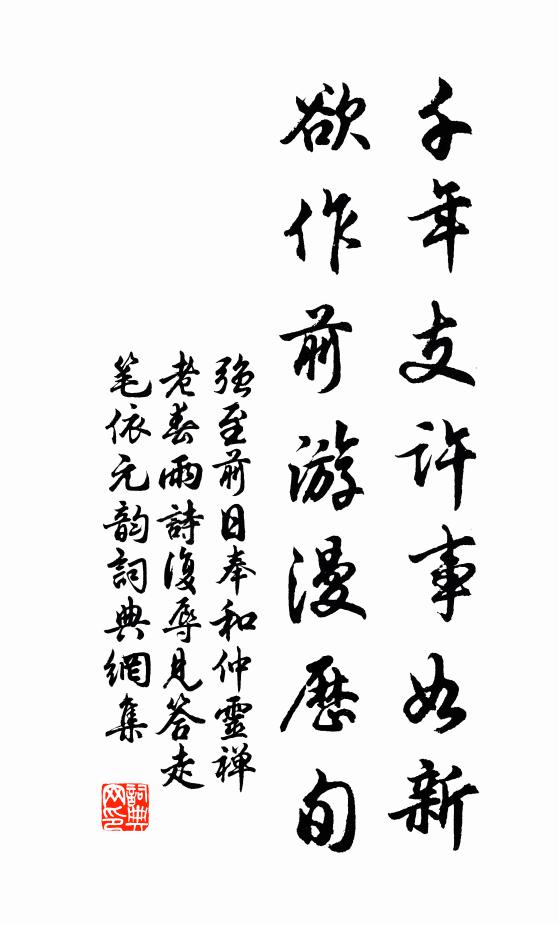 千年支许事如新
欲作前游漫歷旬
強至前日奉和仲靈禅
老春雨詩復辱見答走
笔依元韵詞典網集
詞典
网印